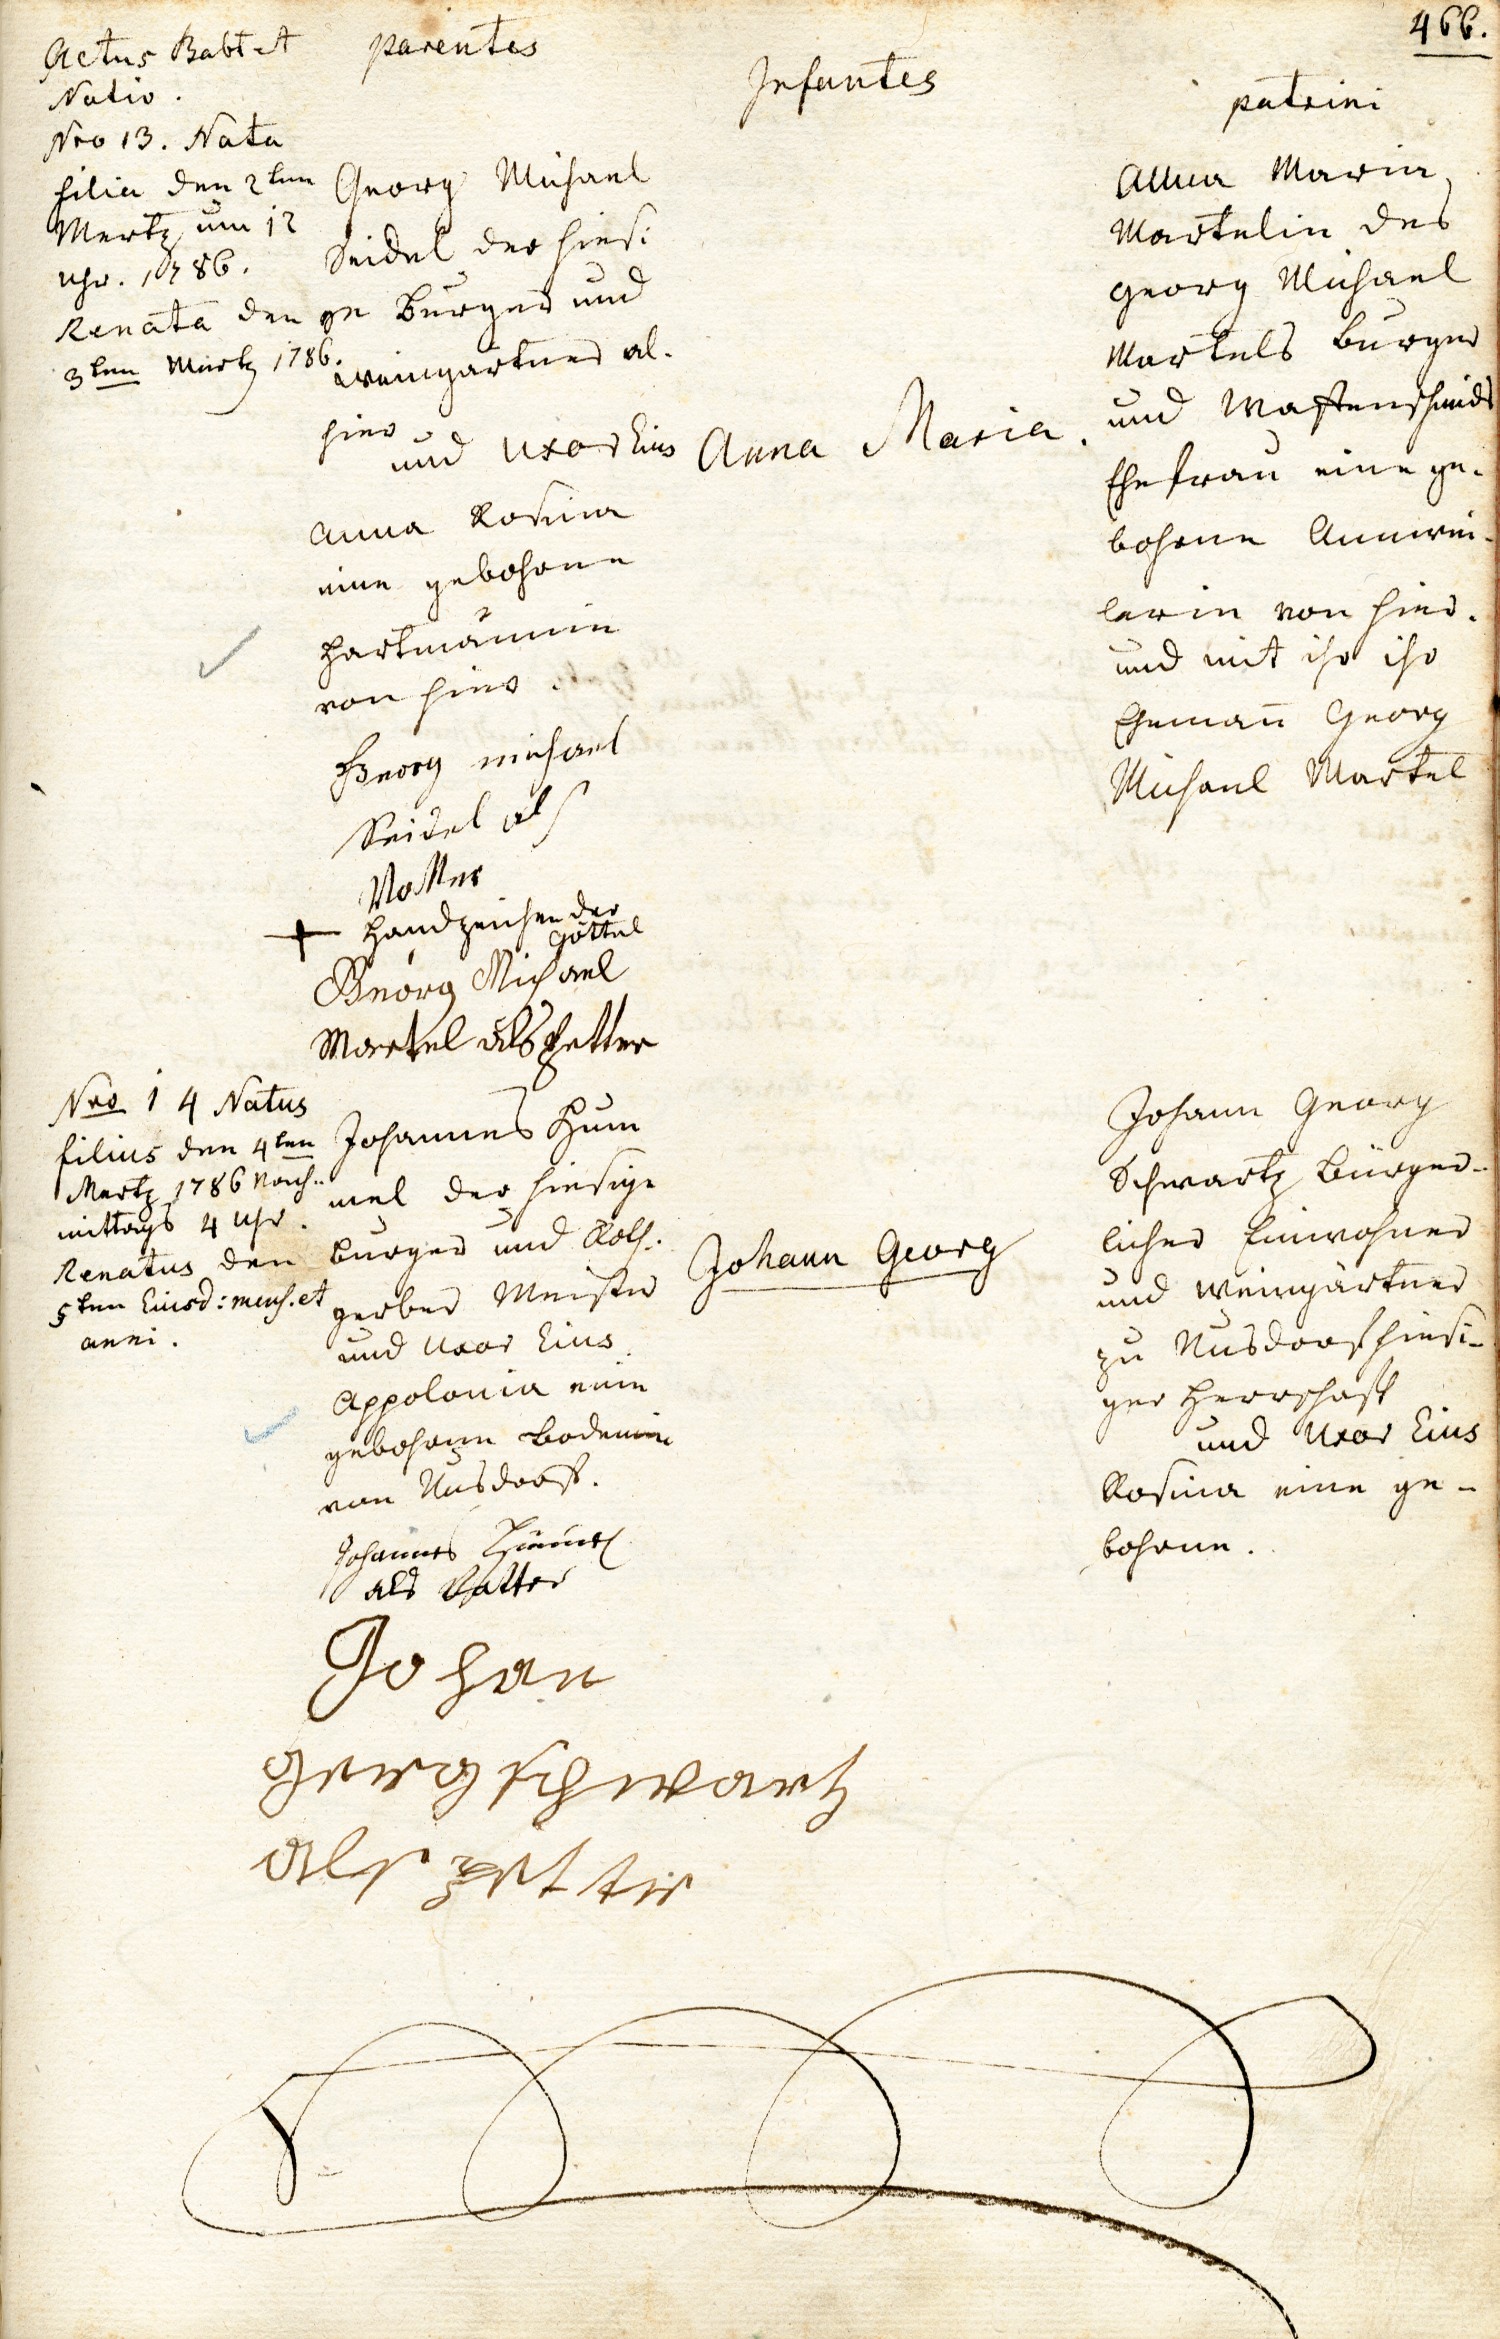 466.
Actus Babt et
Natio.
parentes
Infantes
patrini
Nro 13. Nata
filia den 2ten
Mertz um 12
Uhr. 1786.
Renata den
3ten Mertz 1786.
Georg Michael
Seidel der hiesi
ge Burger und
weingärtner al.
hier
und Uxor Eius
Anna Rosina
eine gebohrne
Hartmännin
von hier.
Georg michael
Seidel als
Vatter
+ Handzeichen der
Göttel
Georg Michael
Martel als Petter
Anna Maria.
Anna Maria
Martelin des
Georg Michael
Martels Burger
und Waffenschmids
Ehefrau eine ge-
bohrne Annwei-
lerin von hier.
und mit ihr ihr
Ehemann Georg
Michael Martel
Nro 14 Natus
filius den 4ten
Mertz 1786 Nach-
mittags 4 Uhr.
Renatus den
5ten Eiusd: mens. et
anni.
Johannes Hum
mel der hiesige
Burger und Roth-
gerber Meister
und Uxor Eius
Appolonia eine
gebohrne Bodemin
von Nusdorf.
Johannes Hummel
als Vatter
Johan
georg schwartz
als petter
Johann Georg
Johann Georg
Schwartz Bürger-
licher Einwohner
und Weingärtner
zu Nusdorf hiesi-
ger Herrschaft
und Uxor Eius
Rosina eine ge-
bohrne.